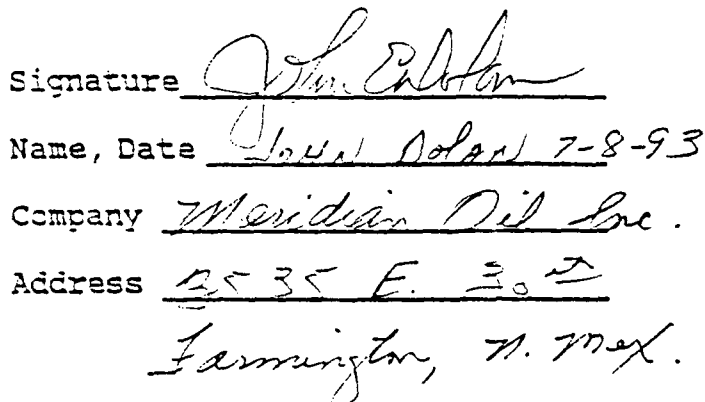 Signature John E. Dolan
Name, Date John Dolan 7-8-93
Company Meridian Oil Inc.
Address 3535 E. 30th
Farmington, N. Mex.